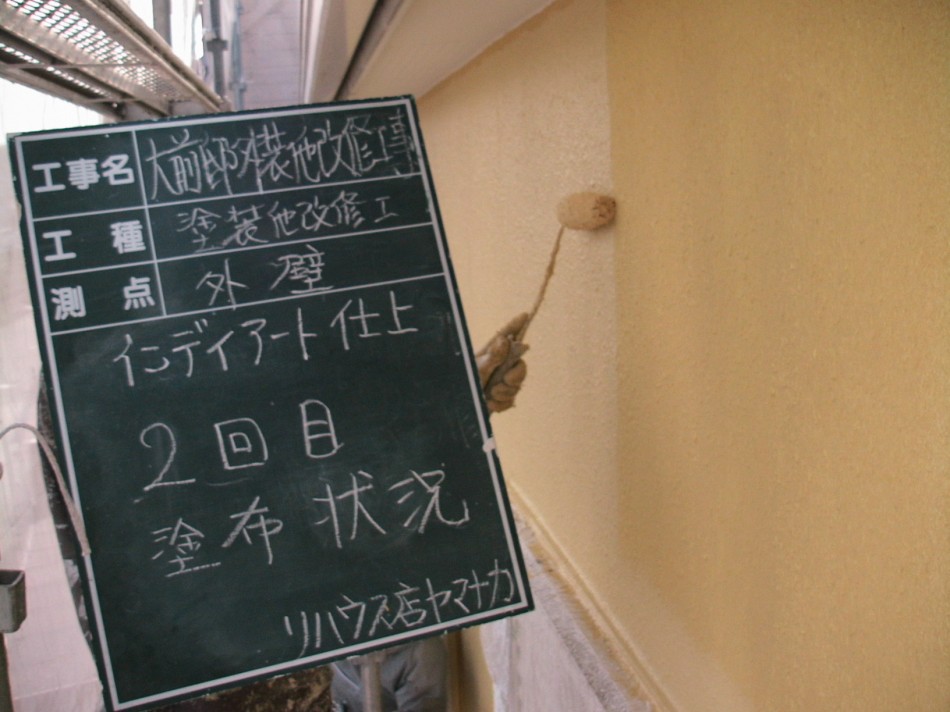 工事名 大前邸外装他改修工事
工種 塗装他改修工
測点 外壁
インディアート仕上
2回目
塗布状況
リハウス店ヤマナカ